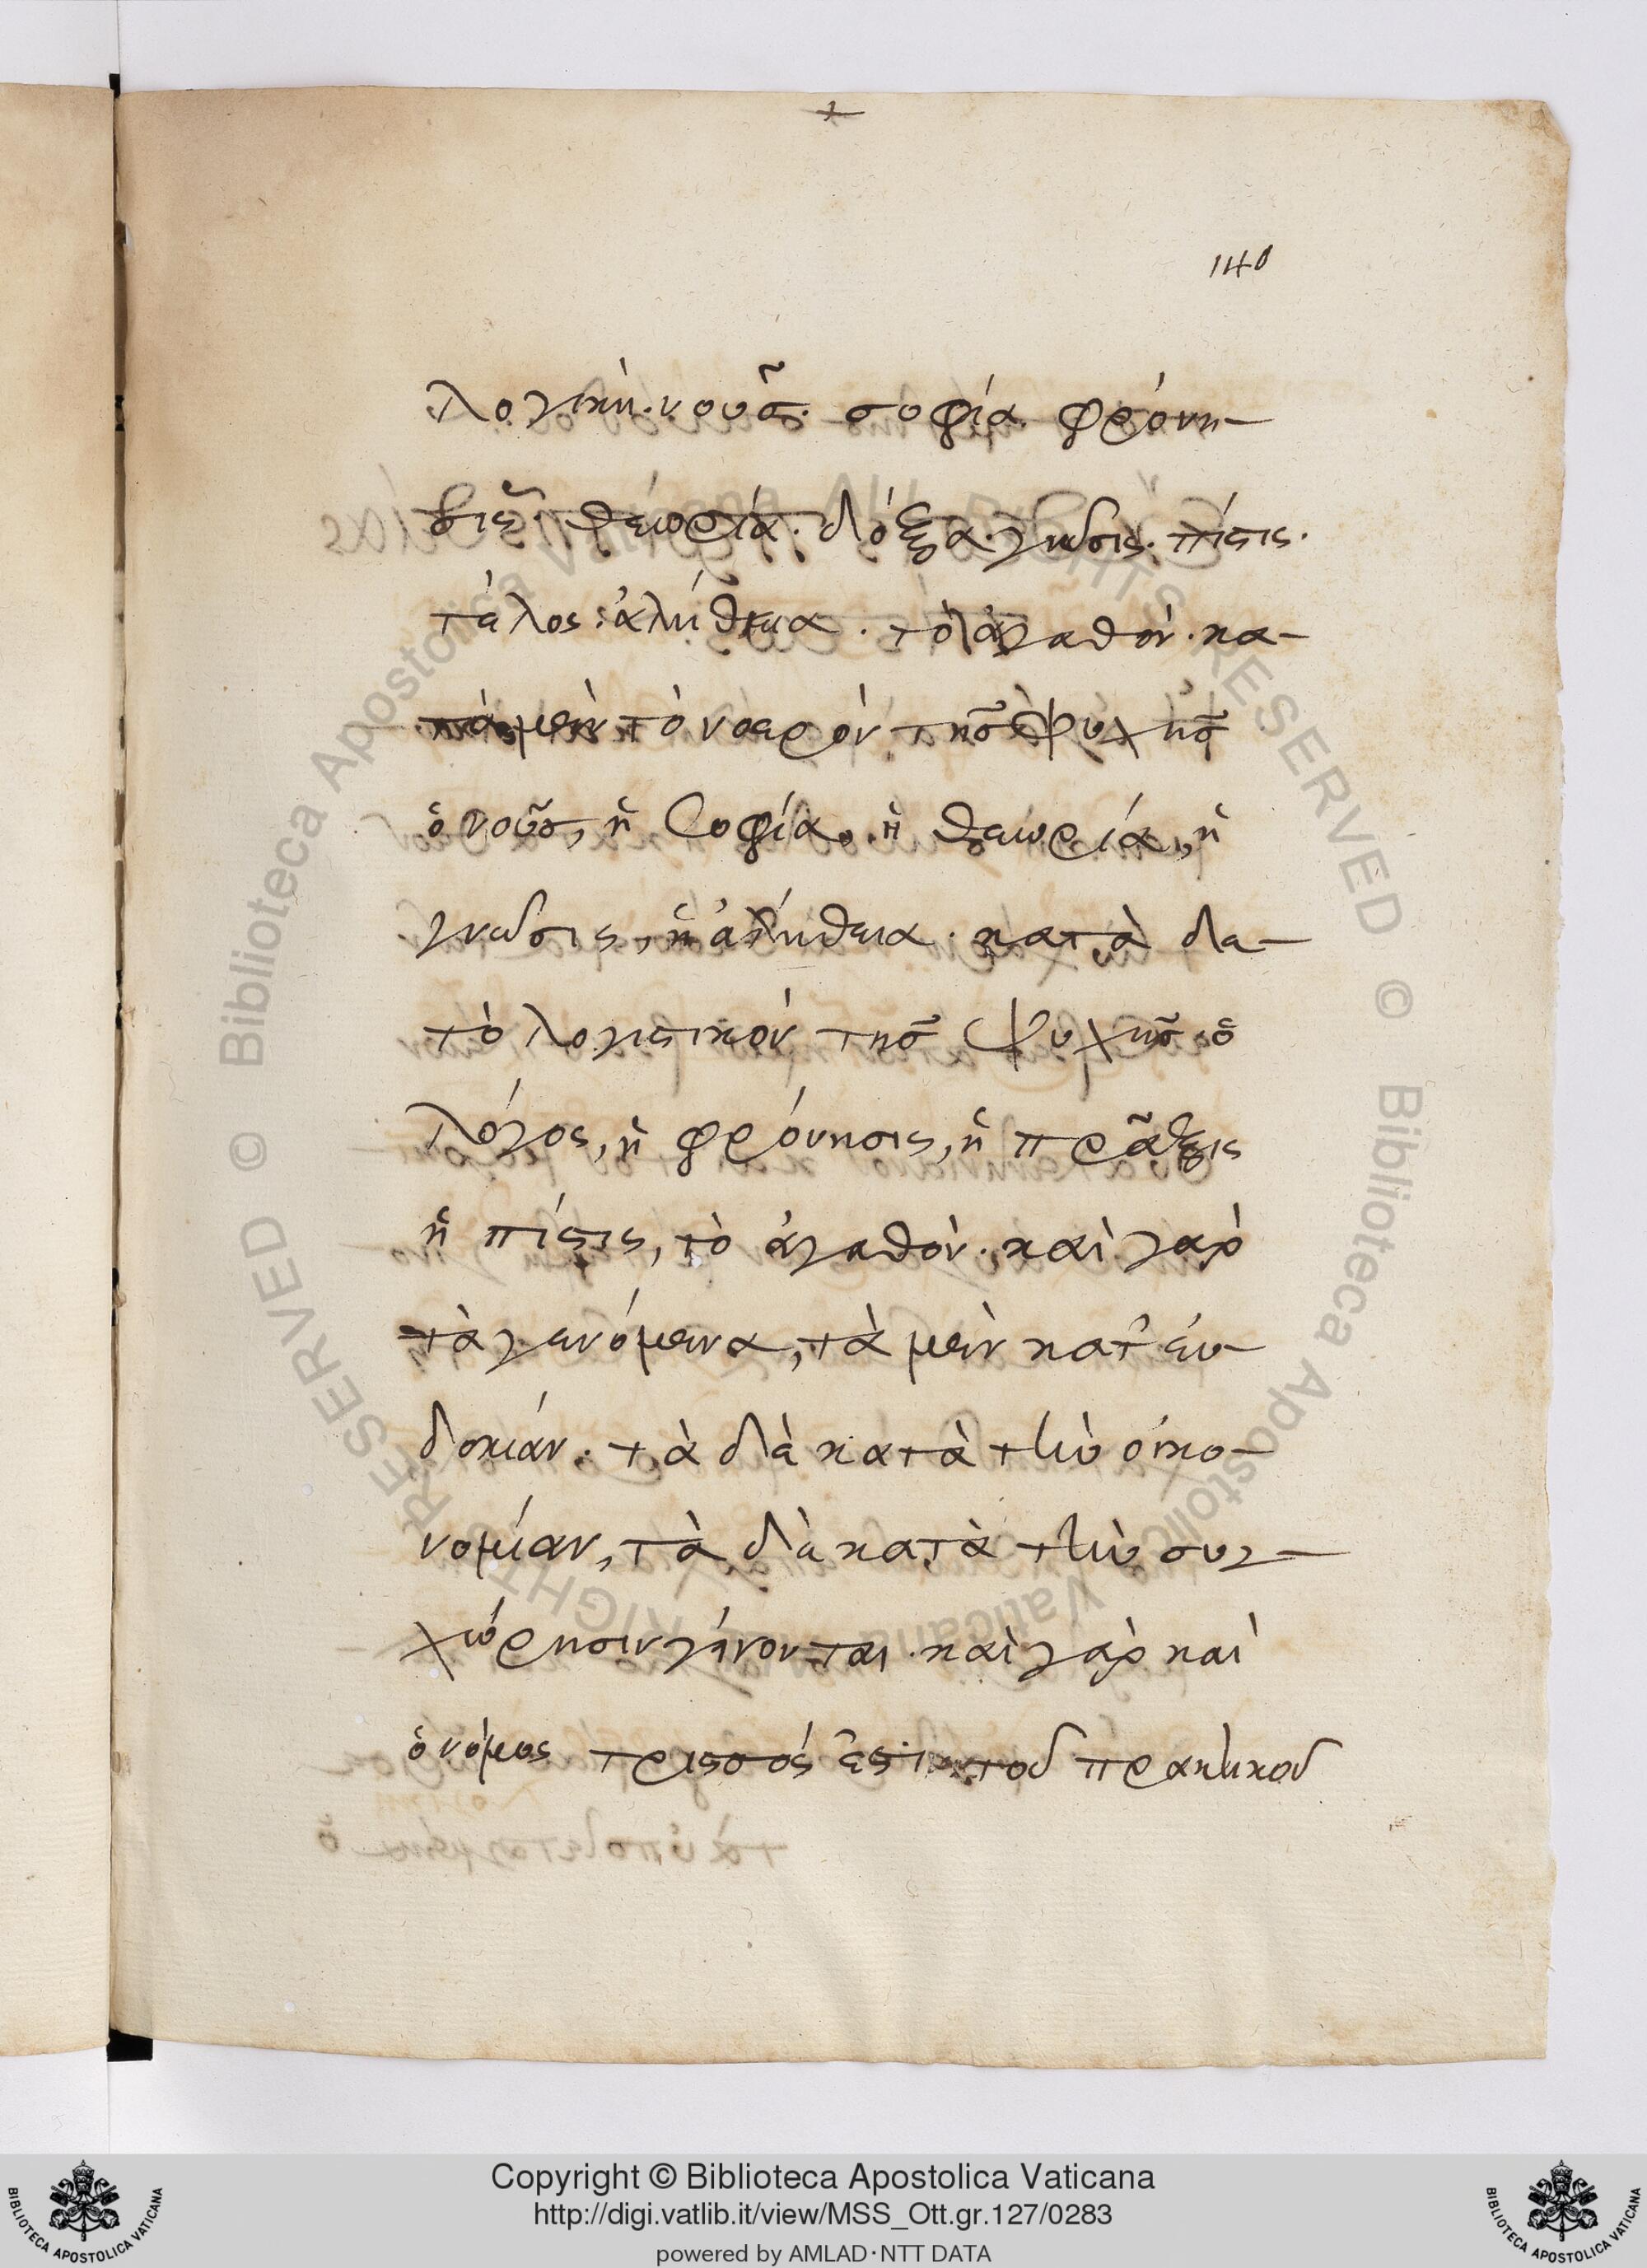 140
λογικὴ· νοῦς· σοφία· φρόνη-
σις· θεωρία· δόξα· γνῶσις· πίστις·
τέλος· ἀλήθεια· τὸ ἀγαθόν· κα-
τὰ μὲν τὸ νοερὸν τῆς ψυχῆς
ὁ νοῦς, ἡ σοφία, ἡ θεωρία, ἡ
γνῶσις, ἡ ἀλήθεια· κατὰ δὲ
τὸ λογιστικὸν τῆς ψυχῆς ὁ
λόγος, ἡ φρόνησις, ἡ πρᾶξις
ἡ πίστις, τὸ ἀγαθόν· καὶ γὰρ
τὰ γενόμενα, τὰ μὲν κατ' εὐ-
δοκίαν· τὰ δὲ κατὰ τὴν οἰκο-
νομίαν, τὰ δὲ κατὰ τὴν συγ-
χώρησιν γίνονται· καὶ γὰρ καὶ
ὁ νόμος τρισσός ἐστι· τοῦ πρακτικοῦ
© Biblioteca Apostolica Vaticana ALL RIGHTS RESERVED © Biblioteca Apostolica Vaticana ALL RIGHTS RESERVED
Copyright © Biblioteca Apostolica Vaticana
http://digi.vatlib.it/view/MSS_Ott.gr.127/0283
powered by AMLAD·NTT DATA
BIBLIOTECA APOSTOLICA VATICANA
BIBLIOTECA APOSTOLICA VATICANA